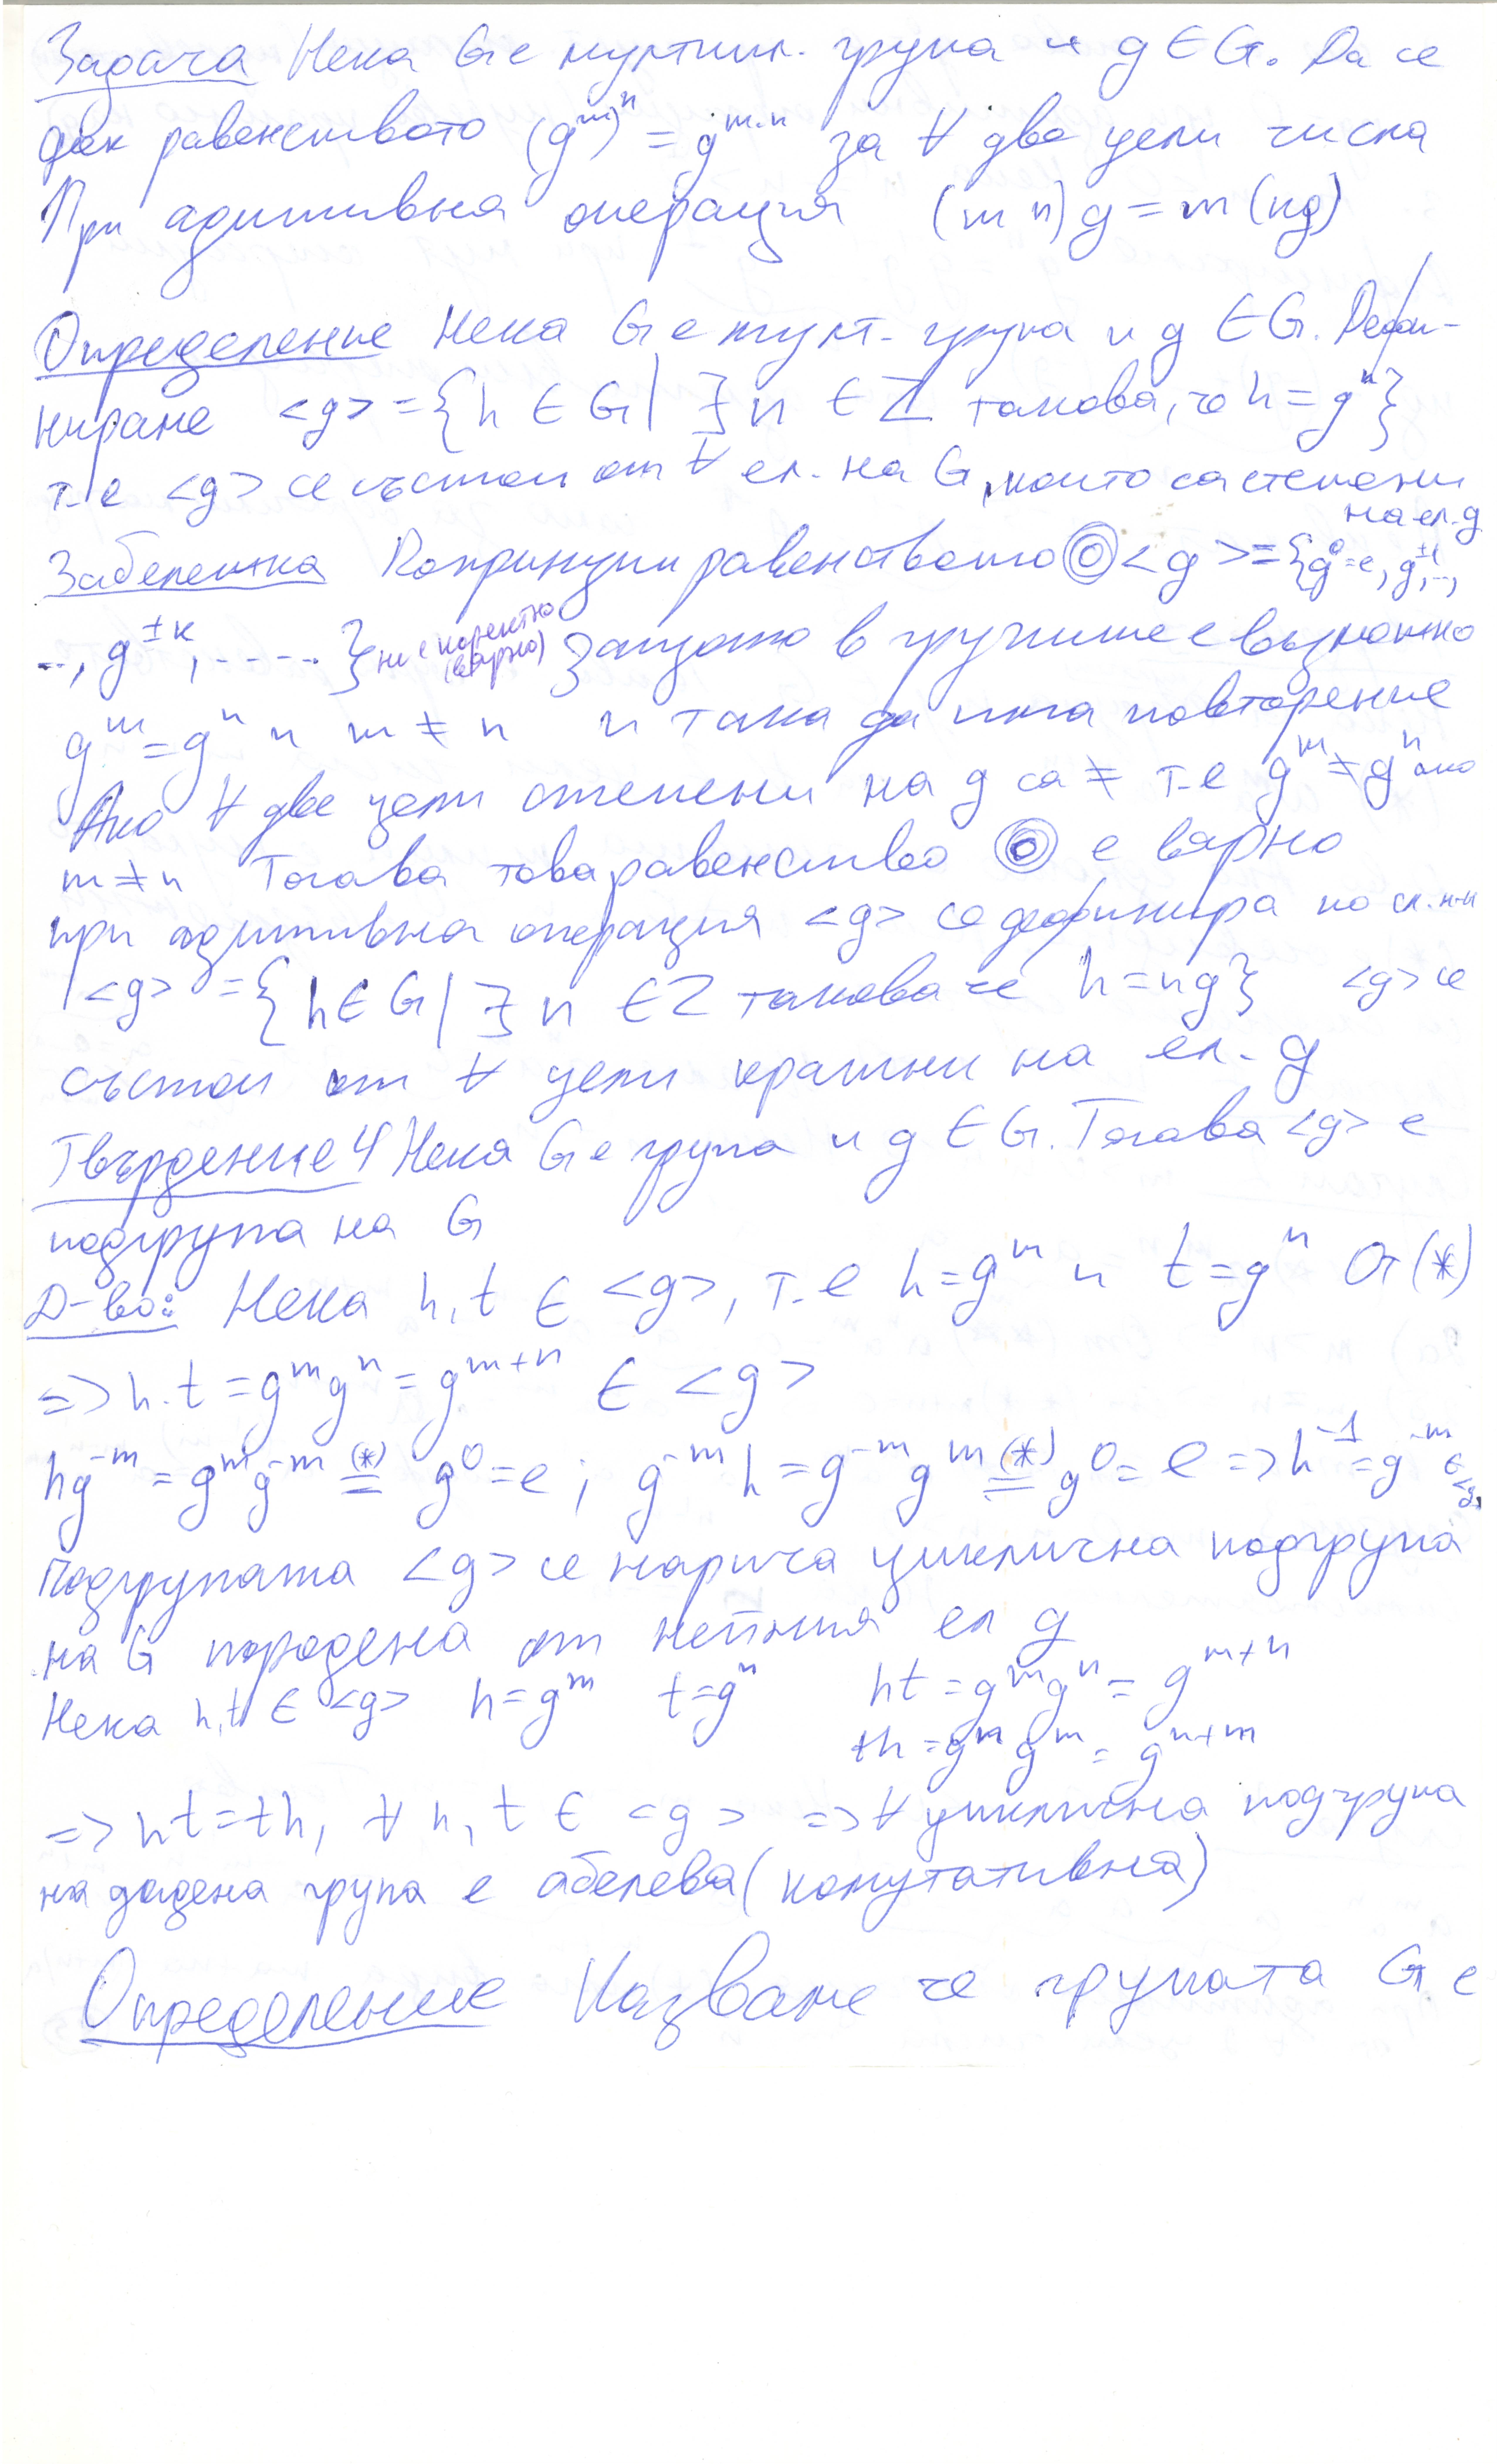 Задача Нека G е мултипл. група и g ∈ G. Да се
док равенството (g^m)^n = g^{m.n} за ∀ две цели числа
При адитивна операция (m n)g = m(ng)
Определение Нека G е мулт. група и g ∈ G. Дефи-
нираме <g> = {h ∈ G | ∃ n ∈ Z такова, че h = g^n}
т.е <g> се състои от ∀ ел. на G, които са степени
на ел. g
Забележка равенството ◎ <g> = {g^0 = e, g^{±1}, ..,
.., g^{±k}, .....} не е коректно (вярно) Защото в групите е възможно
g^m = g^n и m ≠ n и така да има повторение
Ако ∀ две цели степени на g са ≠ т.е g^m ≠ g^n ако
m ≠ n Тогава това равенство ◎ е вярно
при адитивна операция <g> се дефинира по сл. н-н
<g> = {h ∈ G | ∃ n ∈ Z такова че h = ng} <g> се
състои от ∀ цели кратни на ел. g
Твърдение 4 Нека G е група и g ∈ G. Тогава <g> е
подгрупа на G
Д-во: Нека h, t ∈ <g>, т.е h = g^m и t = g^n От (*)
=> h.t = g^m g^n = g^{m+n} ∈ <g>
hg^{-m} = g^m g^{-m} (*)= g^0 = e ; g^{-m} h = g^{-m} g^m (*)= g^0 = e => h^{-1} = g^{-m} ∈ <g>
Подгрупата <g> се нарича циклична подгрупа
на G породена от нейния ел g
Нека h, t ∈ <g> h = g^m t = g^n ht = g^m g^n = g^{m+n}
th = g^n g^m = g^{n+m}
=> ht = th, ∀ h, t ∈ <g> => ∀ циклична подгрупа
на дадена група е абелева (комутативна)
Определение Казваме че групата G е